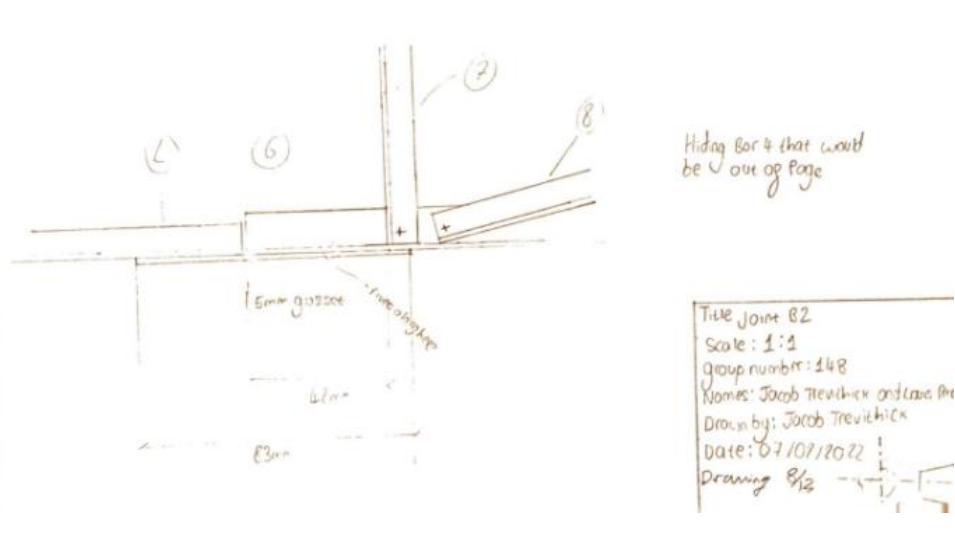 7
8
6
Hiding Bar 4 that would
be out of Page
5mm gusset
42mm
83mm
Title Joint B2
Scale: 1:1
group number: 148
Names: Jacob Trevithick and
Drawn by: Jacob Trevithick
Date: 07/02/2022
Drawing 8/12